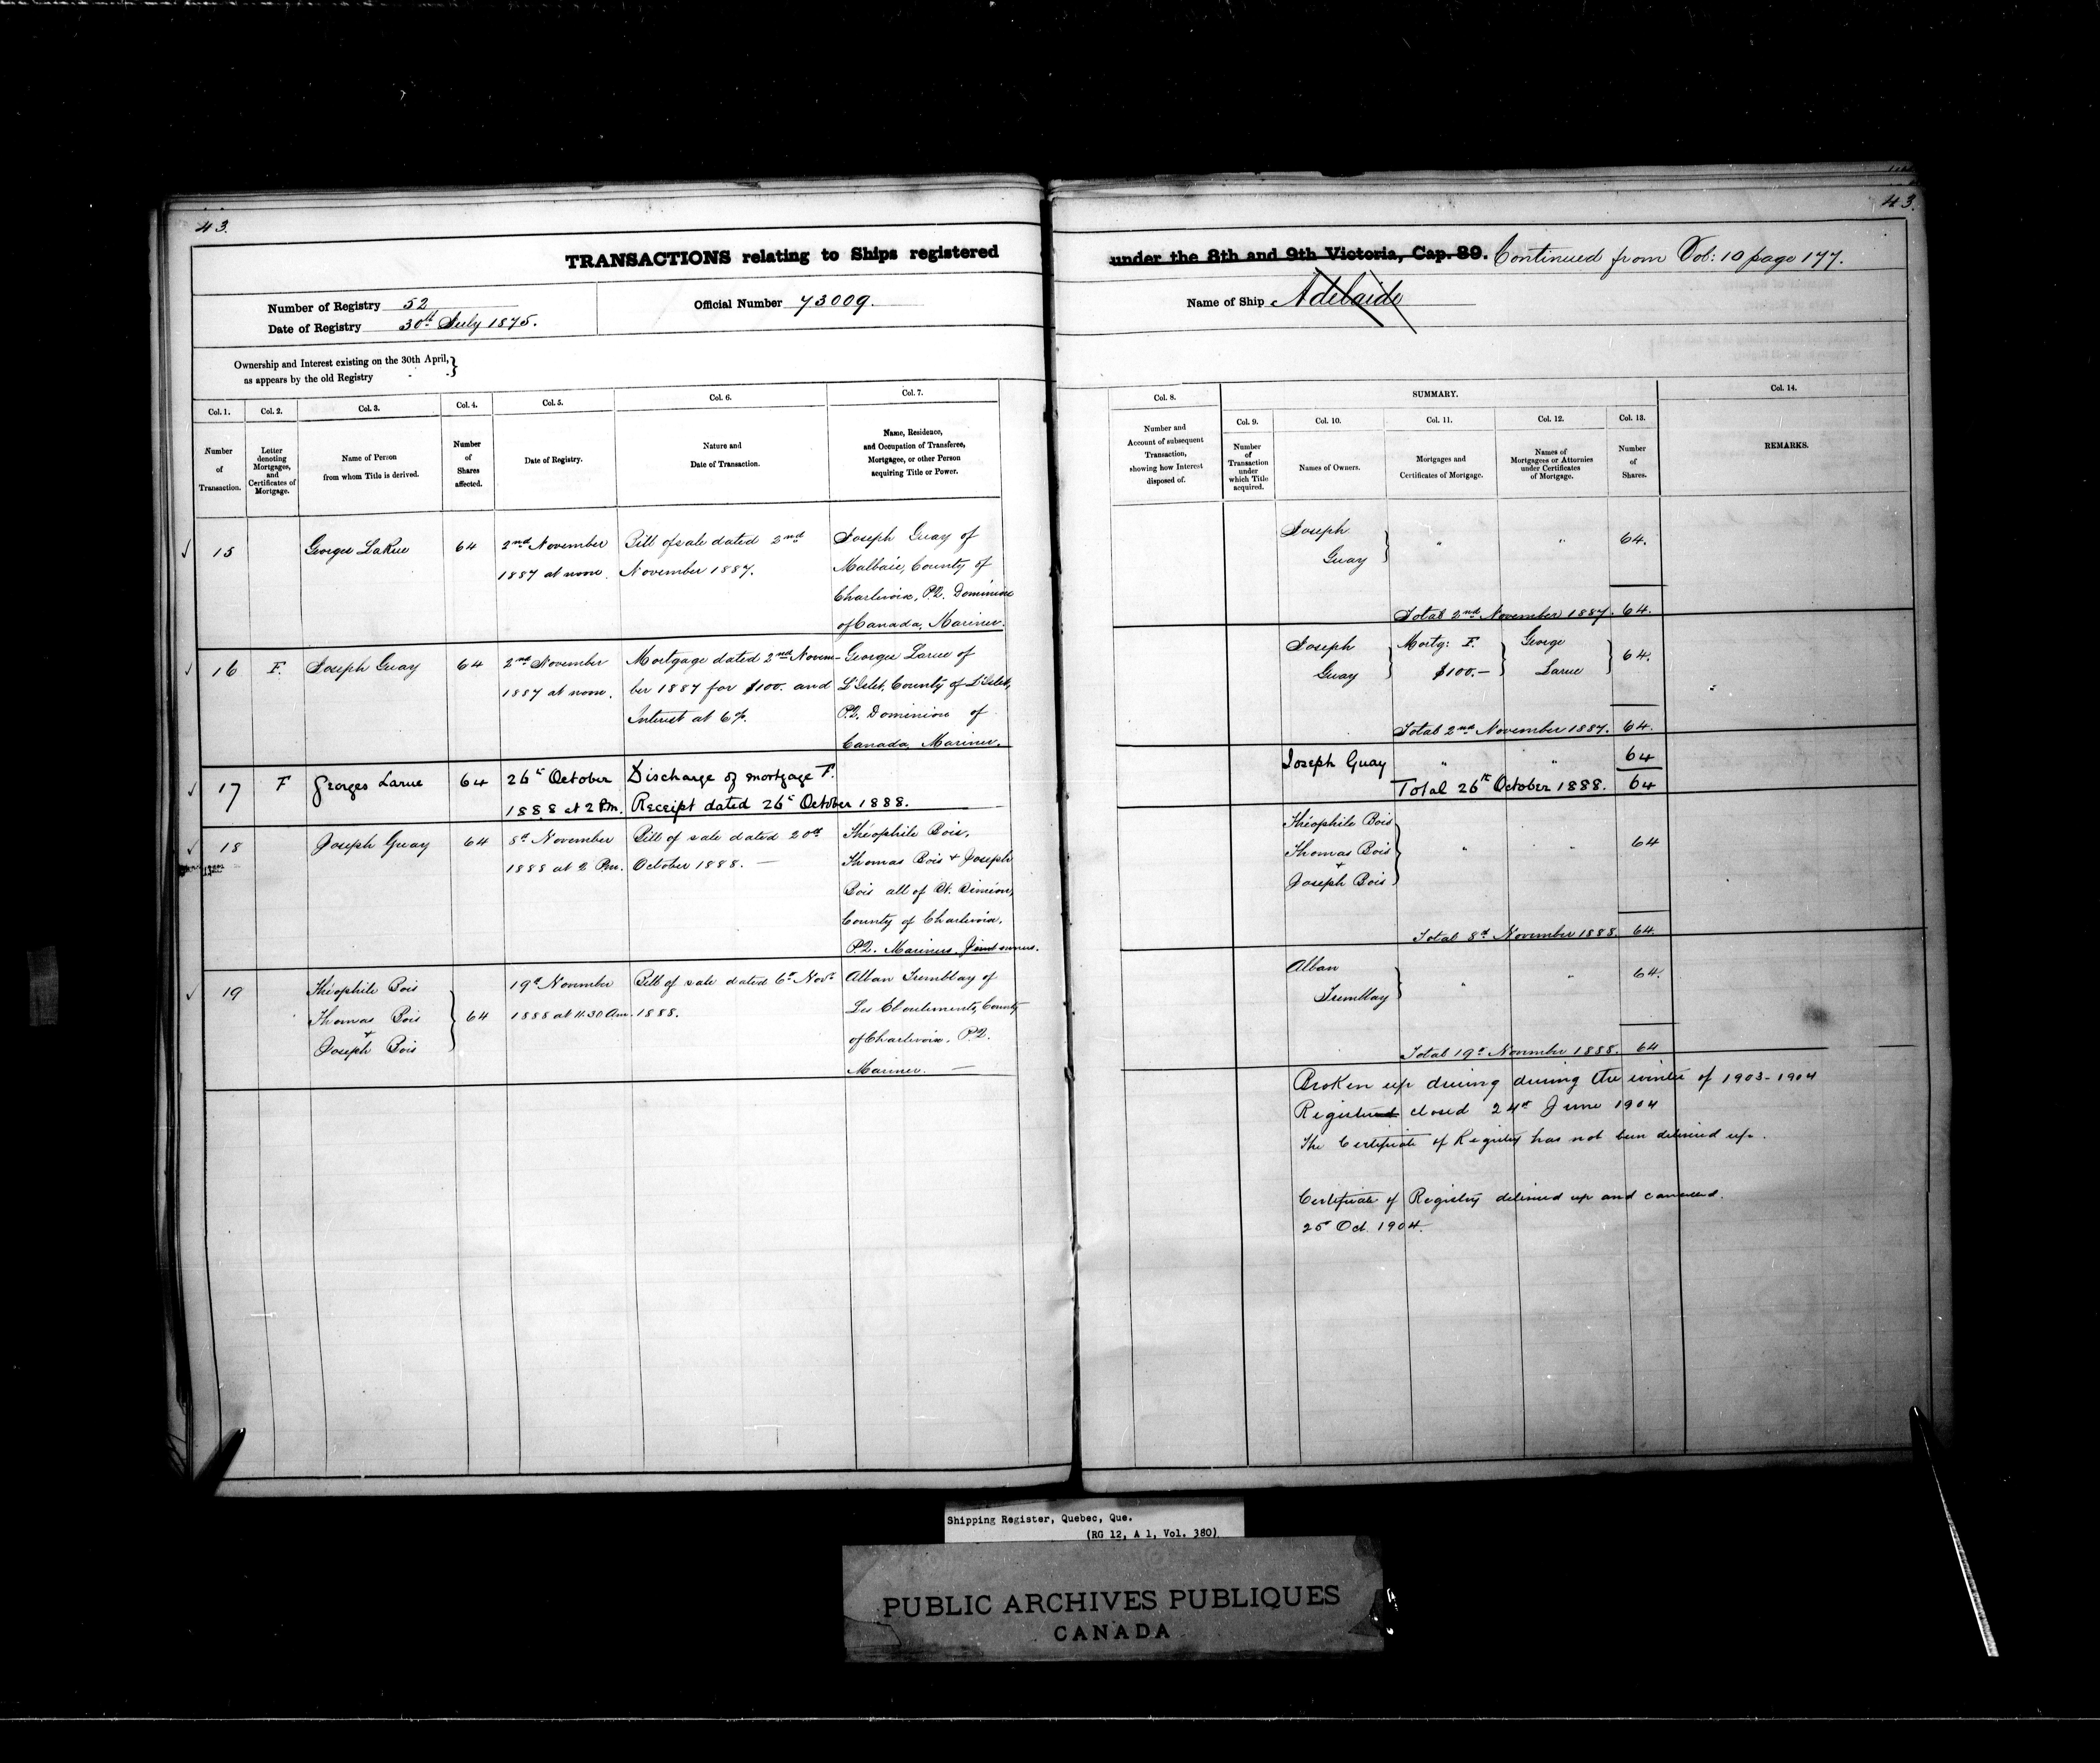 43.
TRANSACTIONS relating to Ships registered
Number of Registry 52
Date of Registry 30th July 1875.
Official Number 73009.
Ownership and Interest existing on the 30th April, }
as appears by the old Registry
Col. 1. Col. 2. Col. 3. Col. 4. Col. 5. Col. 6. Col. 7.
Number
of
Transaction.
Letter
denoting
Mortgages,
and
Certificates of
Mortgage.
Name of Person
from whom Title is derived.
Number
of
Shares
affected.
Date of Registry.
Nature and
Date of Transaction.
Name, Residence,
and Occupation of Transferee,
Mortgagee, or other Person
acquiring Title or Power.
15 Georges LaRue 64 2nd November Bill of sale dated 2nd Joseph Guay of
1887 at noon. November 1887. Malbaie, County of
Charlevoix, P.Q. Dominion
of Canada, Mariner.
16 F. Joseph Guay 64 2nd November Mortgage dated 2nd Novem- Georges Larue of
1887 at noon. ber 1887 for $100. and L'Islet, County of L'Islet,
Interest at 6%. P.Q. Dominion of
Canada, Mariner.
17 F Georges Larue 64 26th October Discharge of mortgage F.
1888 at 2 Pm. Receipt dated 26th October 1888.
18 Joseph Guay 64 8th November Bill of sale dated 20th Théophile Bois,
1888 at 2 Pm. October 1888. — Thomas Bois + Joseph
Bois all of St. Siméon,
County of Charlevoix,
P.Q. Mariners. Joint owners.
19 Théophile Bois 19th November Bill of sale dated 6th Novr. Alban Tremblay of
Thomas Bois } 64 1888 at 11.30 Am. 1888. Les Eboulements, County
+ of Charlevoix, P.Q.
Joseph Bois Mariner. —
43.
under the 8th and 9th Victoria, Cap. 89. Continued from Vol: 10 page 177.
Name of Ship Adelaide
Col. 8. SUMMARY. Col. 14.
Col. 9. Col. 10. Col. 11. Col. 12. Col. 13.
Number and
Account of subsequent
Transaction,
showing how Interest
disposed of.
Number
of
Transaction
under
which Title
acquired.
Names of Owners.
Mortgages and
Certificates of Mortgage.
Names of
Mortgagees or Attornies
under Certificates
of Mortgage.
Number
of
Shares.
REMARKS.
Joseph
Guay } " " 64.
Total 2nd November 1887. 64.
Joseph Mortg: F. George
Guay } $100.— } Larue } 64.
Total 2nd November 1887. 64.
Joseph Guay " " 64
Total 26th October 1888. 64
Théophile Bois
Thomas Bois } " " 64
+
Joseph Bois
Total 8th November 1888. 64.
Alban
Tremblay } " " 64.
Total 19th November 1888. 64
Broken up during during the winter of 1903-1904
Register closed 24th June 1904
The Certificate of Registry has not been delivered up.
Certificate of Registry delivered up and cancelled.
25th Oct. 1904.
Shipping Register, Quebec, Que.
(RG 12, A 1, Vol. 380)
PUBLIC ARCHIVES PUBLIQUES
CANADA